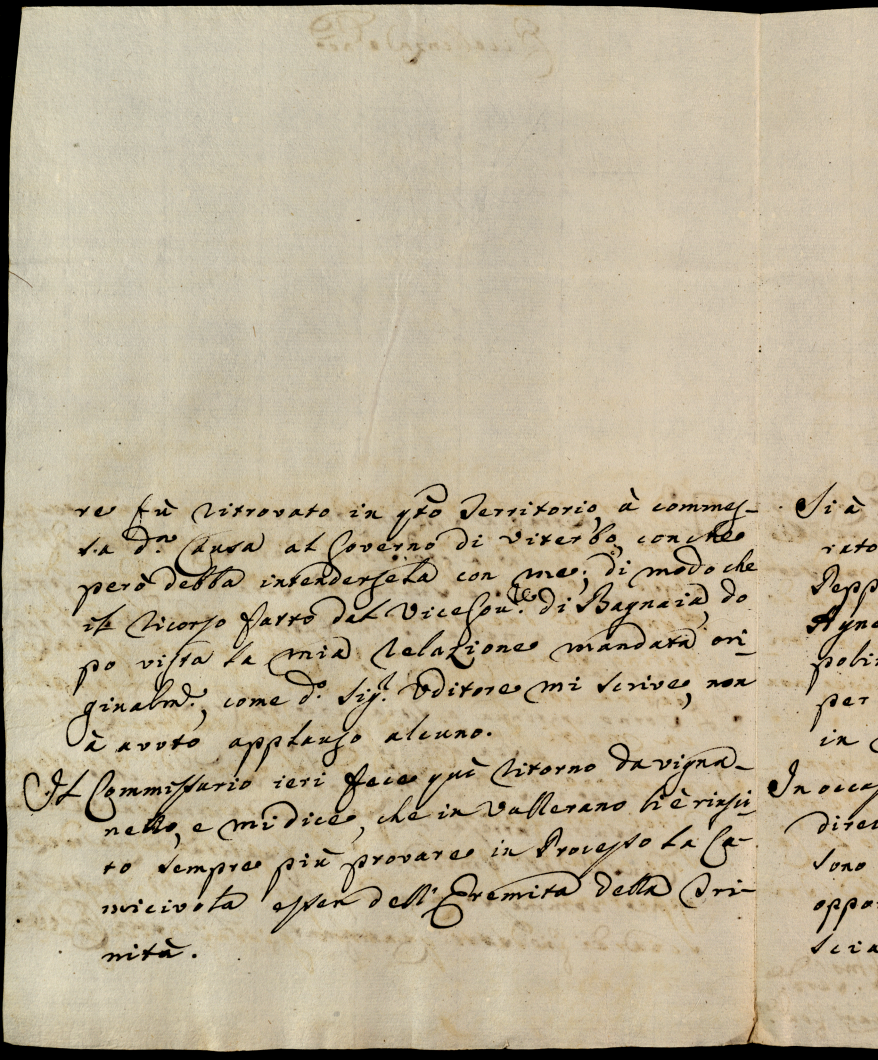 re fù ritrovato in q.to Territorio, à commes-
sa d.a Causa al Governo di Viterbo, con che
però debba intendersela con me; di modo che
il ricorso fatto dal ViceGov.re di Bagnaia, do
po vista la mia relazione mandata ori-
ginalm.e, come d.o Sig.r Uditore mi scrive, non
à avuto applauso alcuno.
Il Commissario ieri fece quì ritorno da Vigna-
nello, e mi dice, che in Vallerano li è riusci-
to sempre più provare in Processo la Ca-
micivola esser dell'Eremita della Tri-
nità.
Si à
rato
Pepp
Agne
polin
per
in
In occas
direi
sono
oppo
scia